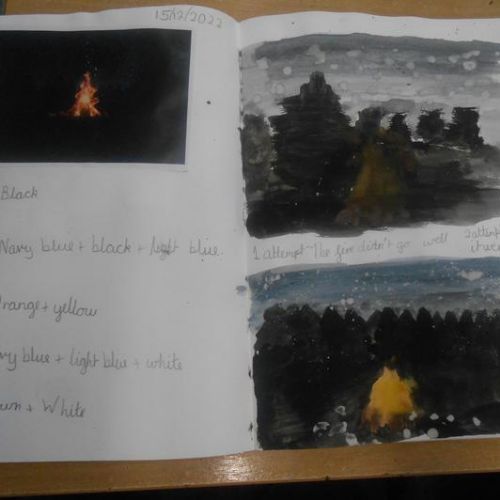 15/12/2022
Black
Navy blue + black + light blue.
Orange + yellow
vy blue + light blue + white
wn + White
1 attempt - The fire didn't go well
2 attempt